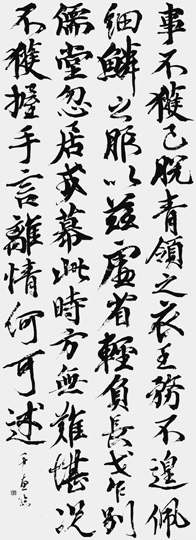 事不獲已脫青領之衣王務不遑佩
細鱗之服以茲虛省輕負長戈乍別
儒堂忽居戎幕此時方無難堪說
不獲握手言離情何可述